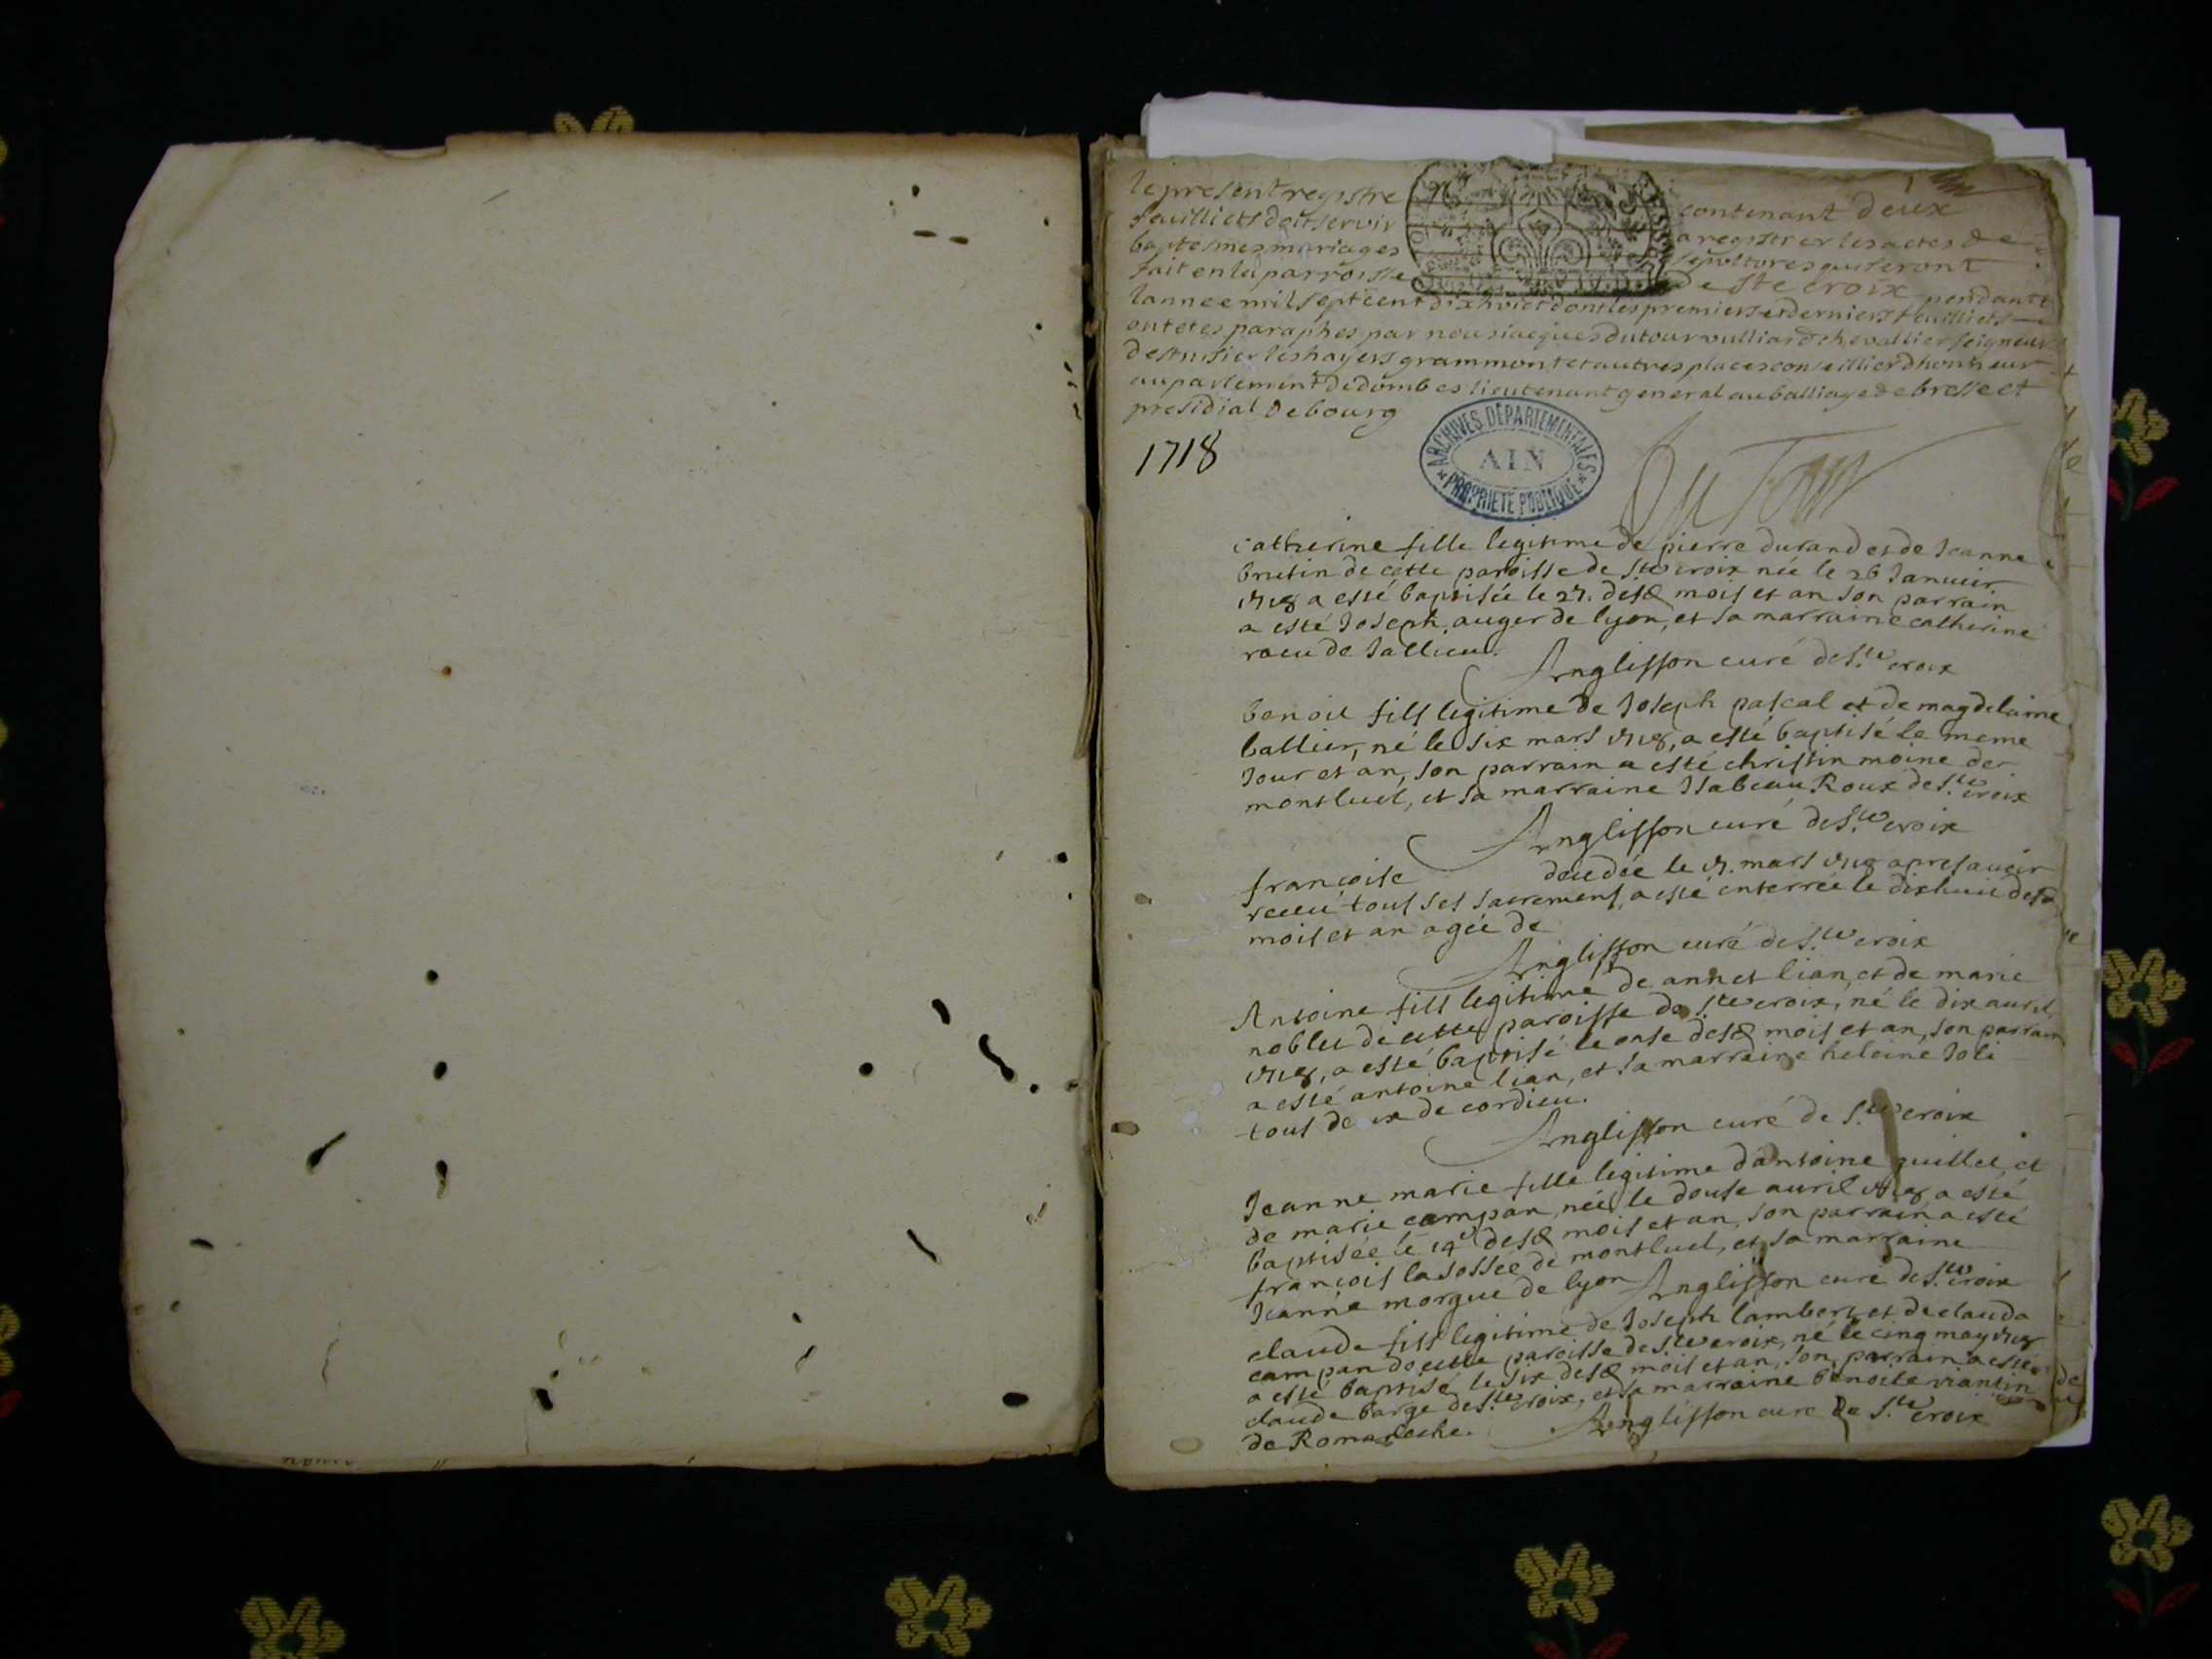 le present registre contenant deux
feuillietsdoitservir a registrer les actes de
baptesmes mariages sepultures qui seront
fait en la parroisse de ste croix pendant
lannee mil sept cent dix huict dont les premiers et derniers feuilliets
ont etes paraphes par nous iacques dutour vulliard chevallier seigneur
de st nisier les hayes grammont et autres places conseillier dhonneur
au parlement de dombes lieutenant general au balliage de bresse et
presidial de bourg
ARCHIVES DÉPARTEMENTALES
AIN
PROPRIÉTÉ PUBLIQUE
1718
DuTour
catherine fille legitime de pierre durand et de Jeanne
brutin de cette paroisse de Ste croix née le 26 Januier
1718 a esté baptisée le 27. desd mois et an son parrain
a esté Joseph auger de lyon, et sa marraine catherine
roeu de Jallieu.
Anglisson curé de S.te croix
benoit fils legitime de Joseph pascal et de magdelaine
ballier, né le six mars 1718, a esté baptisé le meme
Jour et an, son parrain a esté christin moine de
montluel, et sa marraine Isabeau Roux de S.te croix
Anglisson curé de S.te croix
françoise decedée le 17. mars 1718 apres auoir
receu tous ses sacremens, a esté enterrée le dixhuit desd
mois et an agée de
Anglisson curé de S.te croix
Antoine fils legitime de annet lian, et de marie
noblet de cette paroisse de S.te croix, né le dix auril
1718, a esté baptisé le onse desd mois et an, son parrain
a esté antoine lian, et sa marraine heleine Joli
tous deux de cordieu.
Anglisson curé de S.te croix
Jeanne marie fille legitime dantoine guillet, et
de marie campan, née le douse auril 1718, a esté
baptisée le 14e desd mois et an, son parrain a esté
françois la fossée de montluel, et sa marraine
Jeanne morgue de lyon Anglisson curé de S.te croix
claude fils legitime de Joseph lambert et de claude
campan de cette paroisse de S.te croix, né le cinq may 1718
a esté baptisé le six desd mois et an, son parrain a esté
claude barge de S.te croix, et sa marraine benoite viantin
de Romaneche. Anglisson curé de S.te croix